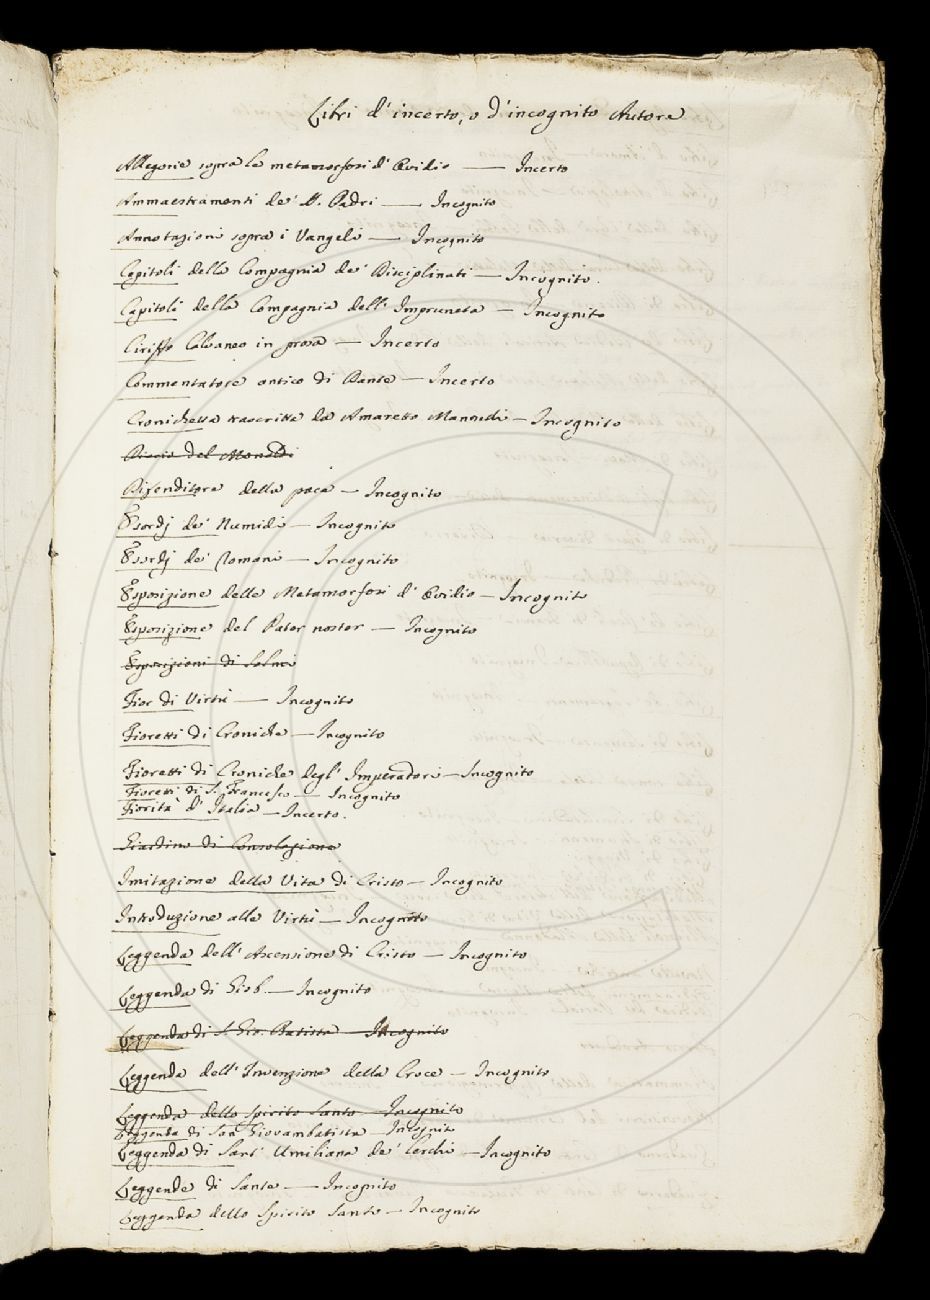 Libri d'incerto, o d'incognito Autore
Allegorie sopra le metamorfosi d'Ovidio — Incerto
Ammaestramenti de' SS. Padri — Incognito
Annotazioni sopra i Vangeli — Incognito
Capitoli della Compagnia de' Disciplinati — Incognito.
Capitoli della Compagnia dell'Impruneta — Incognito
Ciriffo Calvaneo in prosa — Incerto
Commentatore antico di Dante — Incerto
Cronichetta trascritta da Amaretto Mannelli — Incognito
del Monaldi
Difenditore della pace — Incognito
Esordj de' Numidi — Incognito
Esordj de' Romani — Incognito
Esposizione delle Metamorfosi d'Ovidio — Incognito
Esposizione del Pater noster — Incognito
Esposizioni di Salmi
Fior di Virtù — Incognito
Fioretti di Croniche — Incognito
Fioretti di Croniche degl'Imperadori — Incognito
Fioretti di S. Francesco — Incognito
Fiorità d'Italia — Incerto.
Giardino di Consolazione
Imitazione della Vita di Cristo — Incognito
Introduzione alle Virtù — Incognito
Leggenda dell'Ascensione di Cristo — Incognito
Leggenda di Giob. — Incognito
Leggenda di S. Gio. Batista — Incognito
Leggenda dell'Invenzione della Croce — Incognito
Leggenda dello Spirito Santo — Incognito
Leggenda di San Giovambatista — Incognito
Leggenda di Sant'Umiliana de' Cerchi — Incognito
Leggende di Sante — Incognito
Leggenda dello Spirito Santo — Incognito